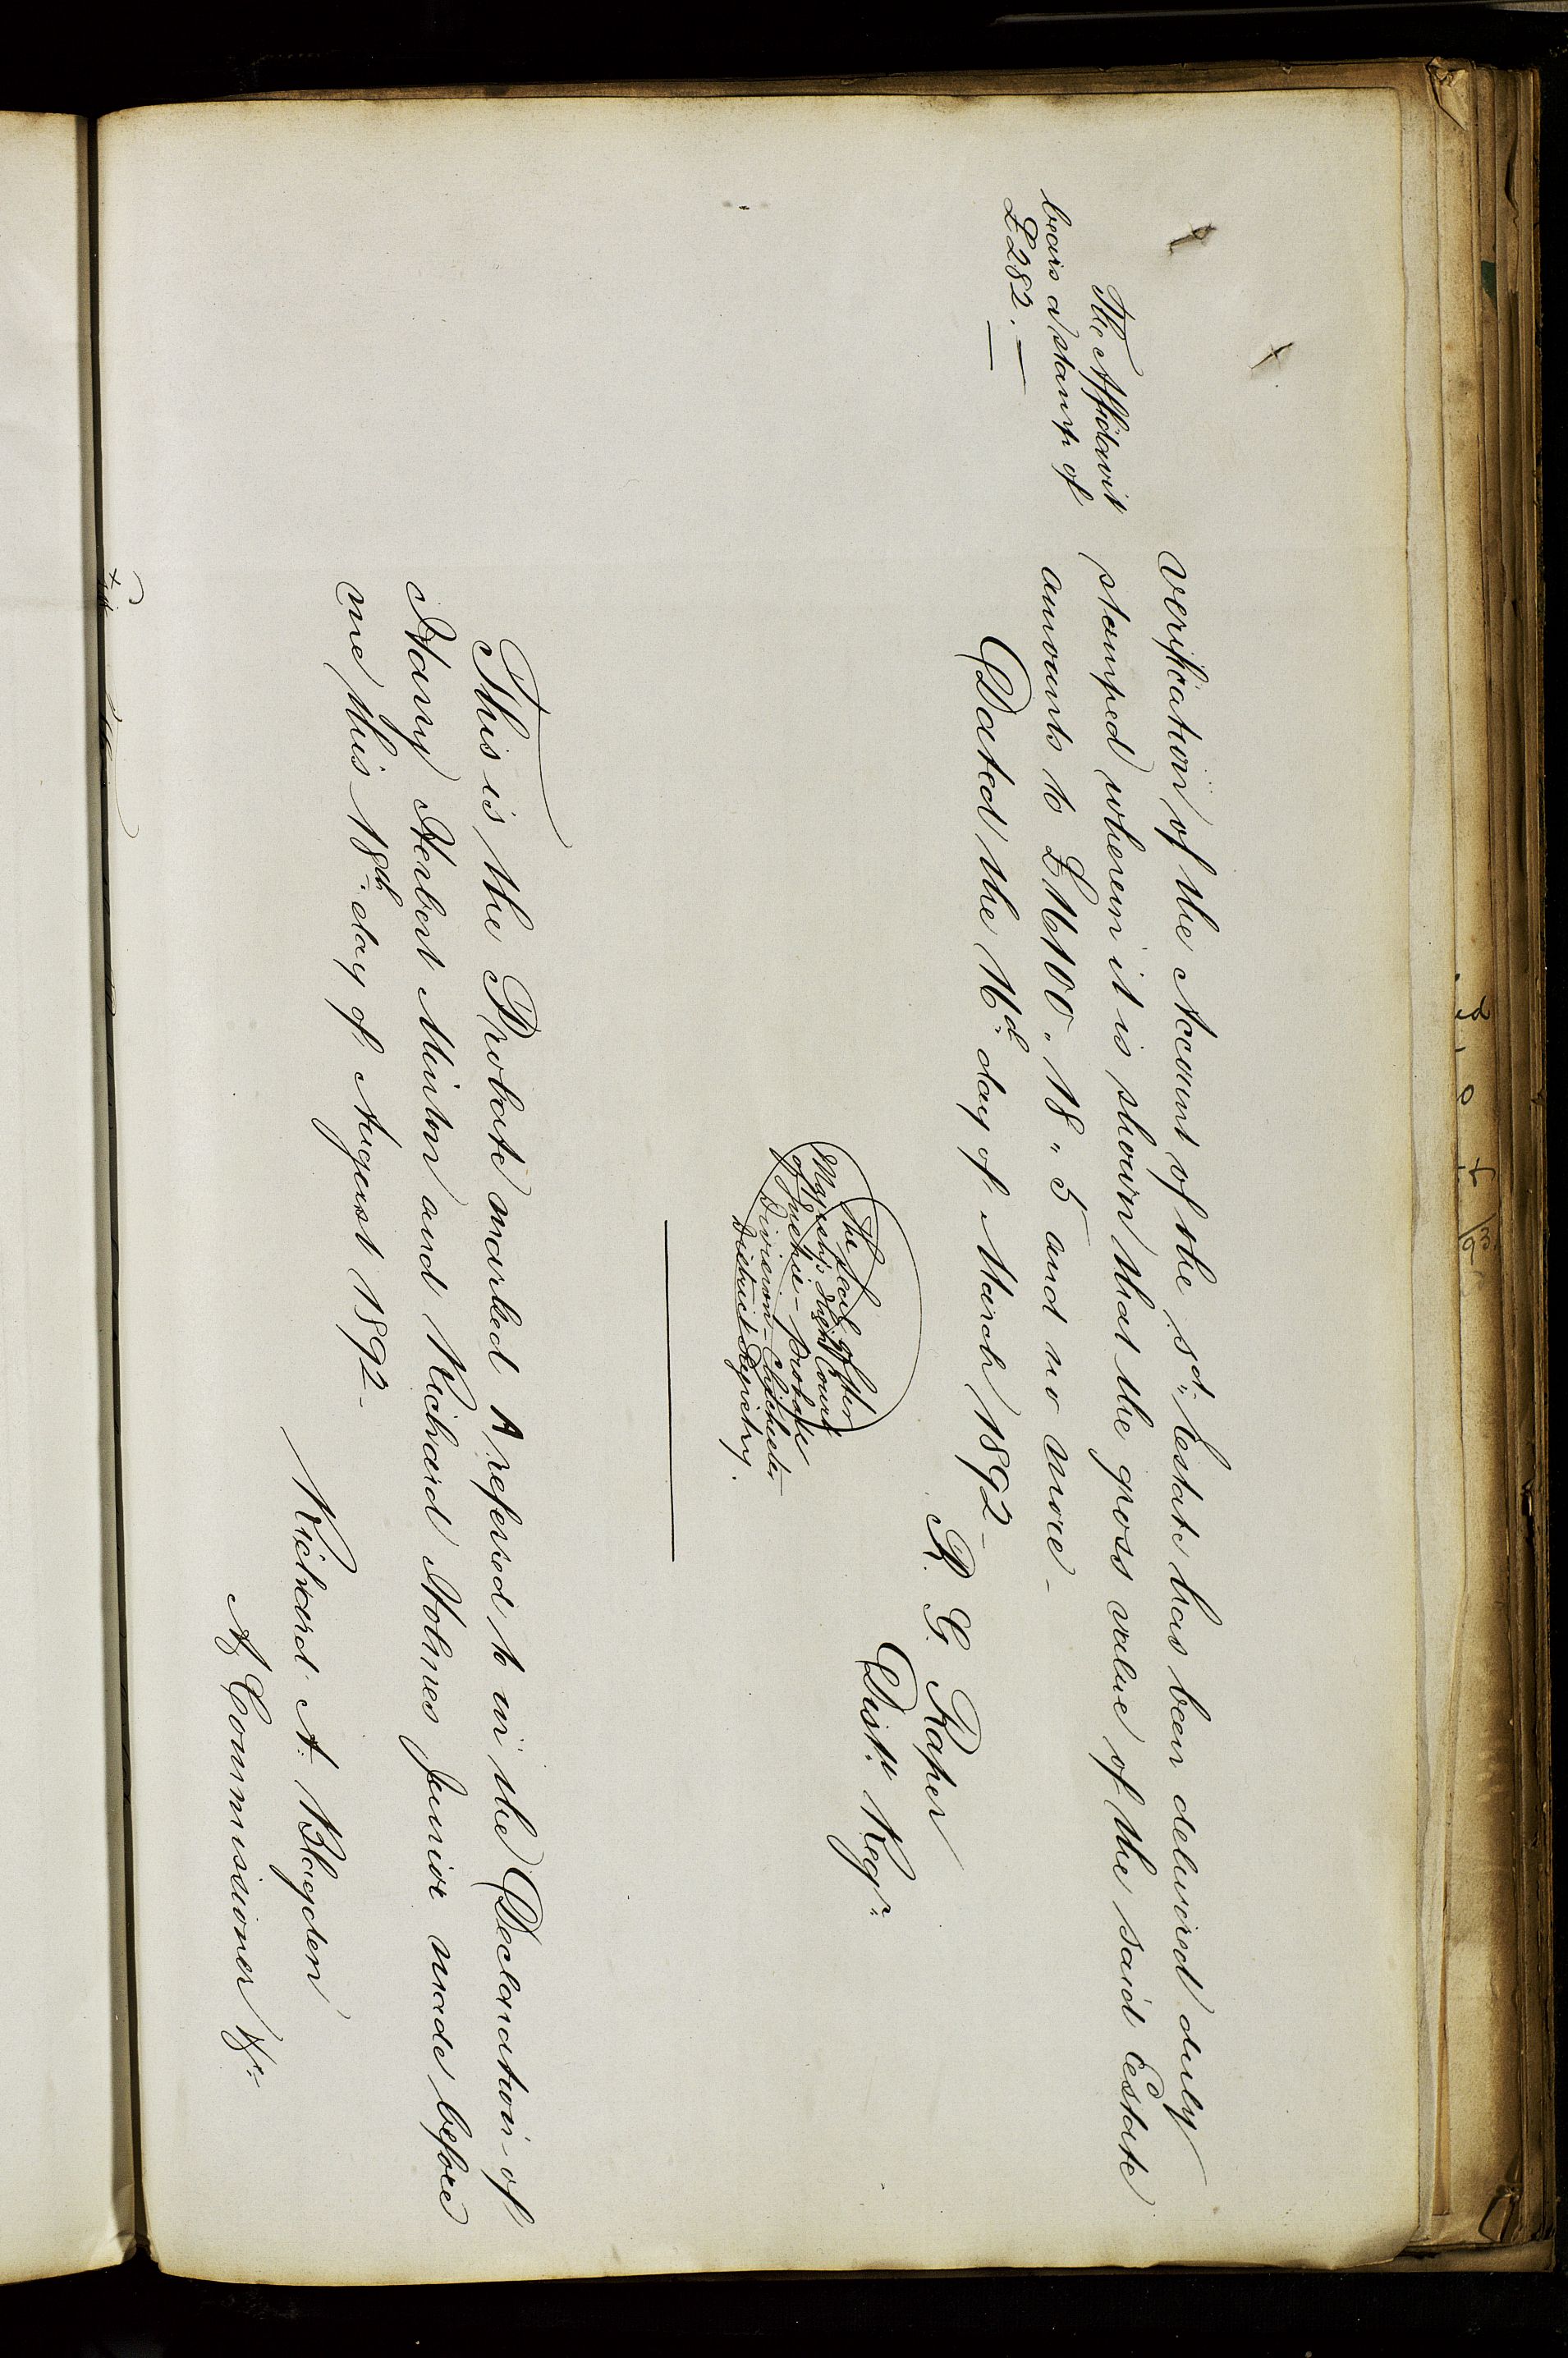 verification of the Account of the sd. Estate has been delivered duly
stamped wherein it is shown that the gross value of the said Estate
amounts to £16100 " 18 " 5 and no more -
The Affidavit
bears a stamp of
£282. —
Dated the 16d. day of March 1892 -
R. G. Raper
Distt. Regr.
The Seal of Her
Majesty's High Court
of Justice - Probate
Division - Chichester
District Registry.
This is the Probate marked A referred to in the Declaration - of
Harry Herbert Minton and Richard Holmes Junior made before
me this 18th. day of August 1892 -
Richard A. Blagden
A Commissioner &c.